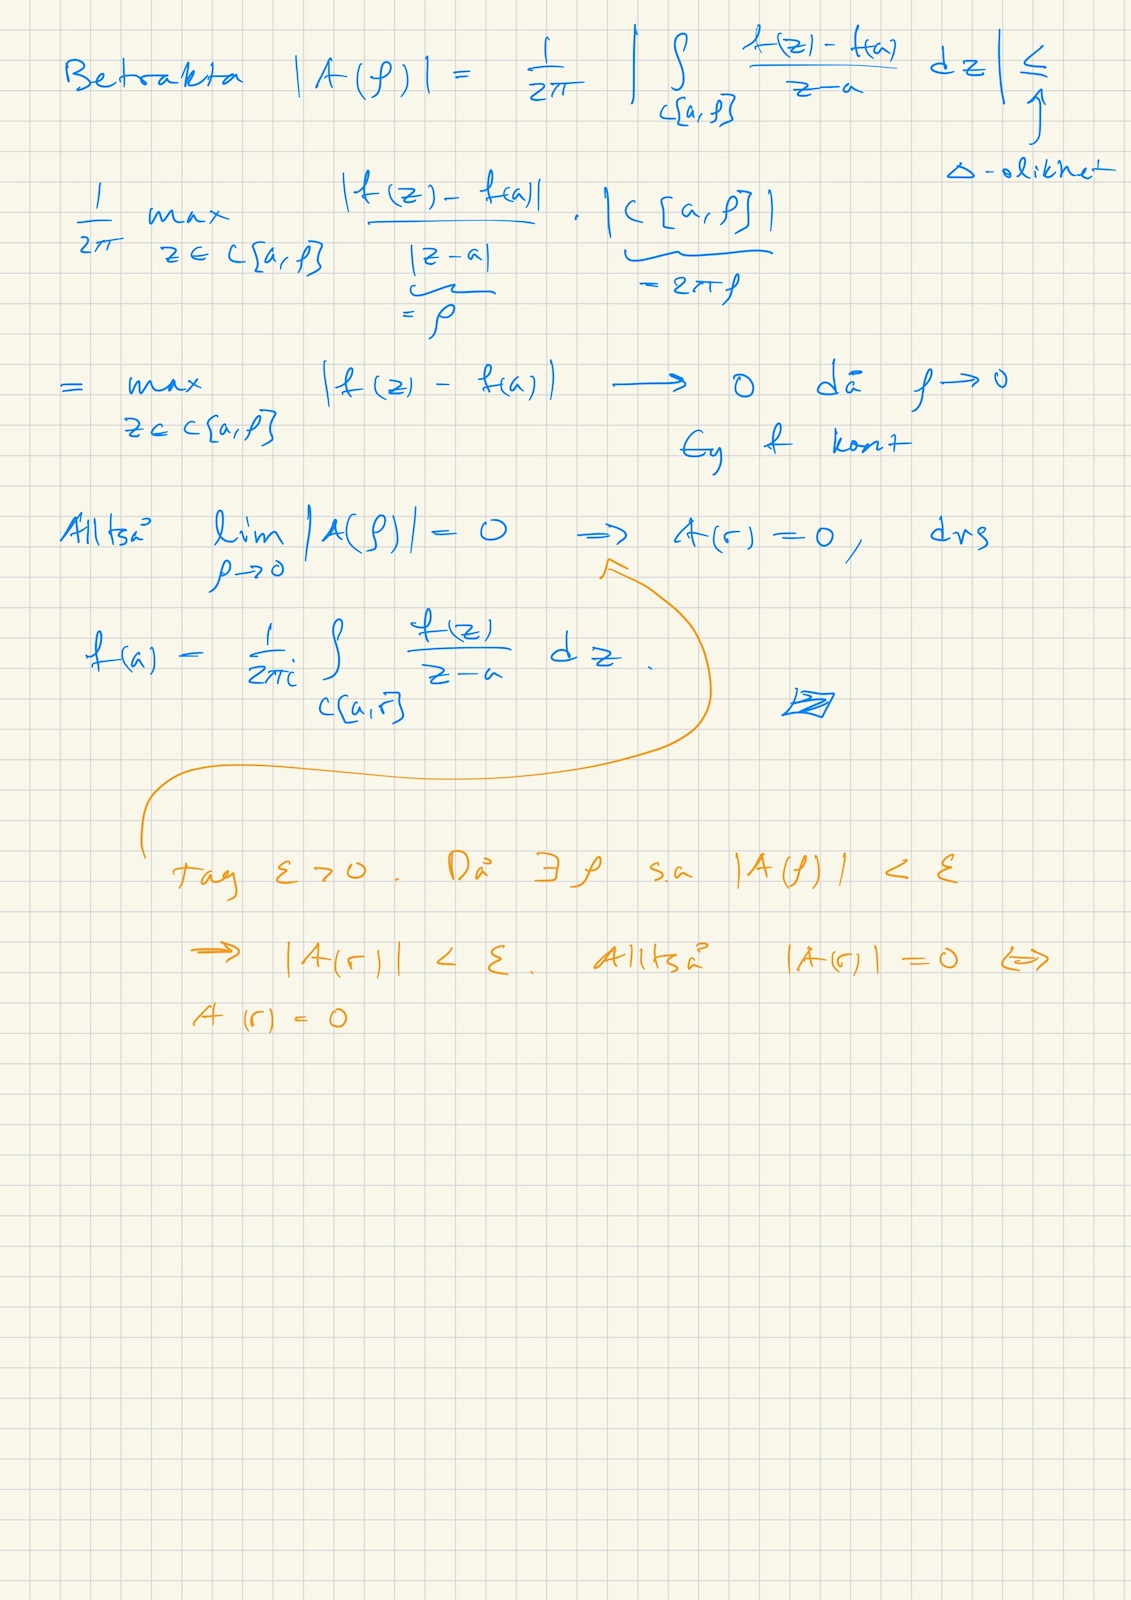 Betrakta |A(ρ)| = 1/2π | ∫_{C[a,ρ]} (f(z) - f(a))/(z-a) dz | ≤
Δ-olikhet
1/2π max_{z∈C[a,ρ]} |f(z) - f(a)|/|z-a| · |C[a,ρ]|
= ρ
= 2πρ
= max_{z∈C[a,ρ]} |f(z) - f(a)| → 0 då ρ→0
Ey f kont
Alltså lim_{ρ→0} |A(ρ)| = 0 ⇒ A(r) = 0, dvs
f(a) = 1/2πi ∫_{C[a,r]} f(z)/(z-a) dz.
Tag ε > 0. Då ∃ ρ s.a |A(ρ)| < ε
⇒ |A(r)| < ε. Alltså |A(r)| = 0 ⇔
A(r) = 0